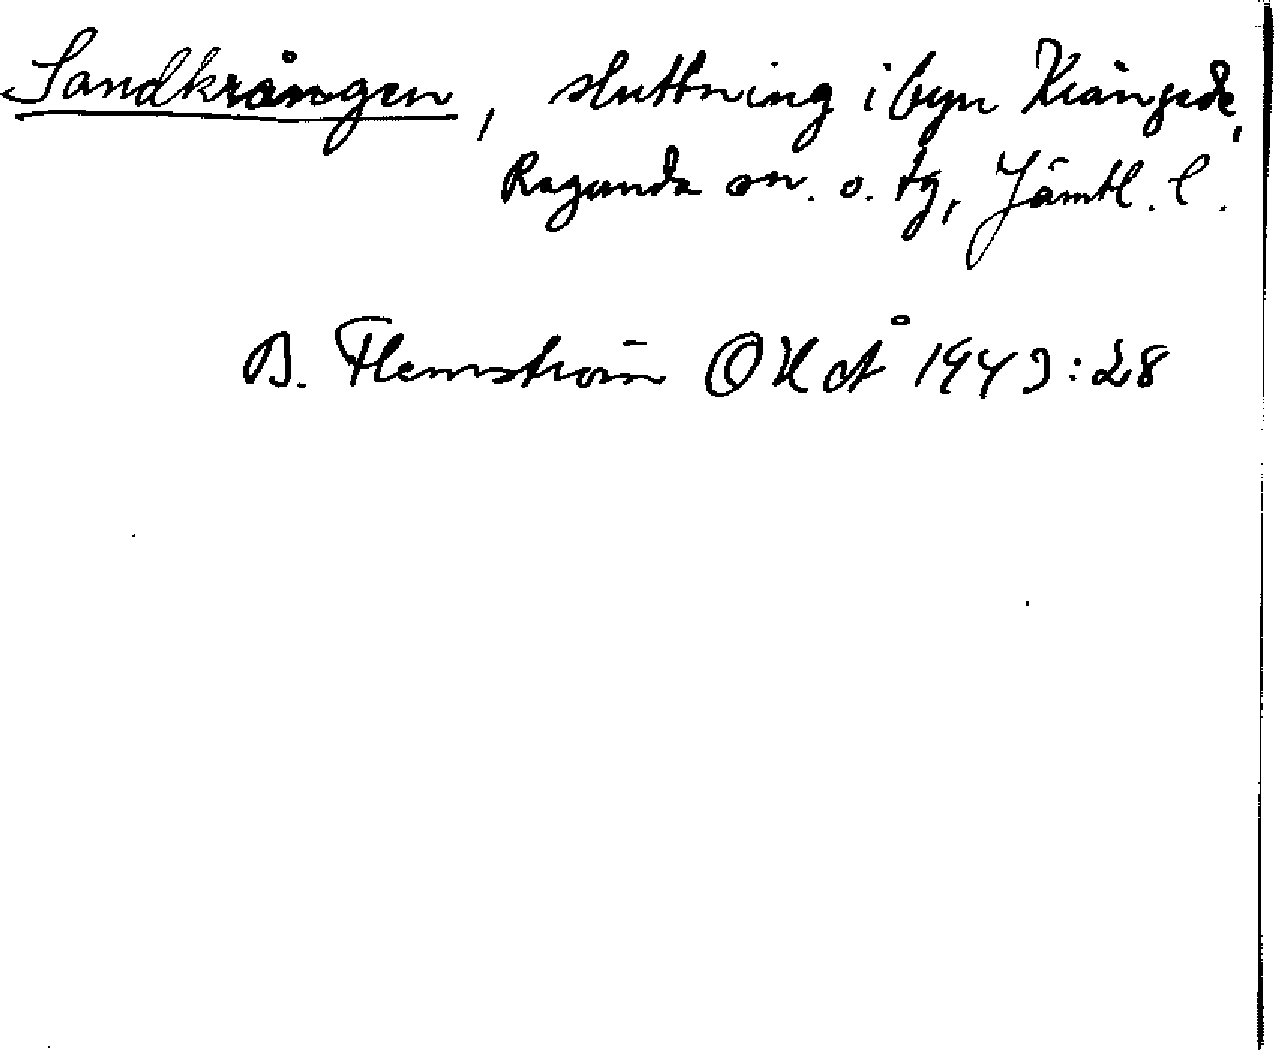 Sandkrången, sluttning i byn Krångede,
Ragunda sn. o. tg, Jämtl. l.
B. Flemström OUÅ 1943:28